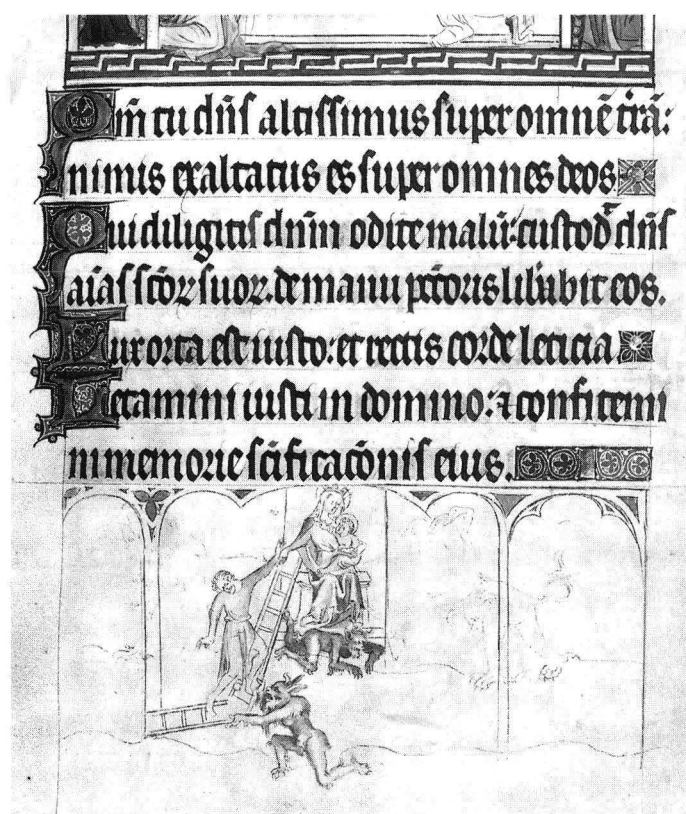 Qm̄ tu dn̄s altissimus super omnē tr̄ā:
nimis exaltatus es super omnes deos
Qui diligitis dn̄m odite malū: custod̄ dn̄s
aīas sc̄oꝝ suoꝝ. de manu pc̄c̄oris lib̄abit eos.
Lux orta est iusto: et rectis corde leticia.
Letamini iusti in domino: ⁊ confitemi
ni memorie sc̄ificac̄onis eius.